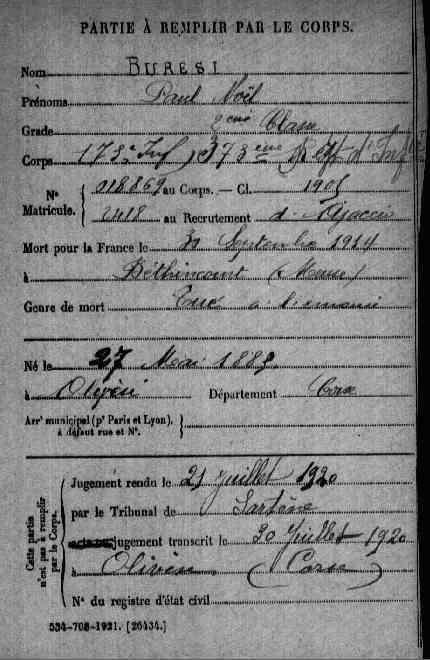 PARTIE À REMPLIR PAR LE CORPS.
Nom BURESI
Prénoms Paul Noël
Grade 2eme Classe
Corps 173e Inf 373eme Rt d'Inf
N° Matricule. 018869 au Corps. — Cl. 1905
2418 au Recrutement d'Ajaccio
Mort pour la France le Septembre 1914
à Béthincourt (Meuse)
Genre de mort Tué à l'ennemi
Né le 27 Mai 1885
à Olivèse Département Corse
Arrt municipal (pr Paris et Lyon),
à défaut rue et N°.
Cette partie n'est pas à remplir par le Corps.
Jugement rendu le 21 juillet 1920
par le Tribunal de Sartène
jugement transcrit le 30 juillet 1920
à Olivèse (Corse)
N° du registre d'état civil
534-708-1921. [26434.]